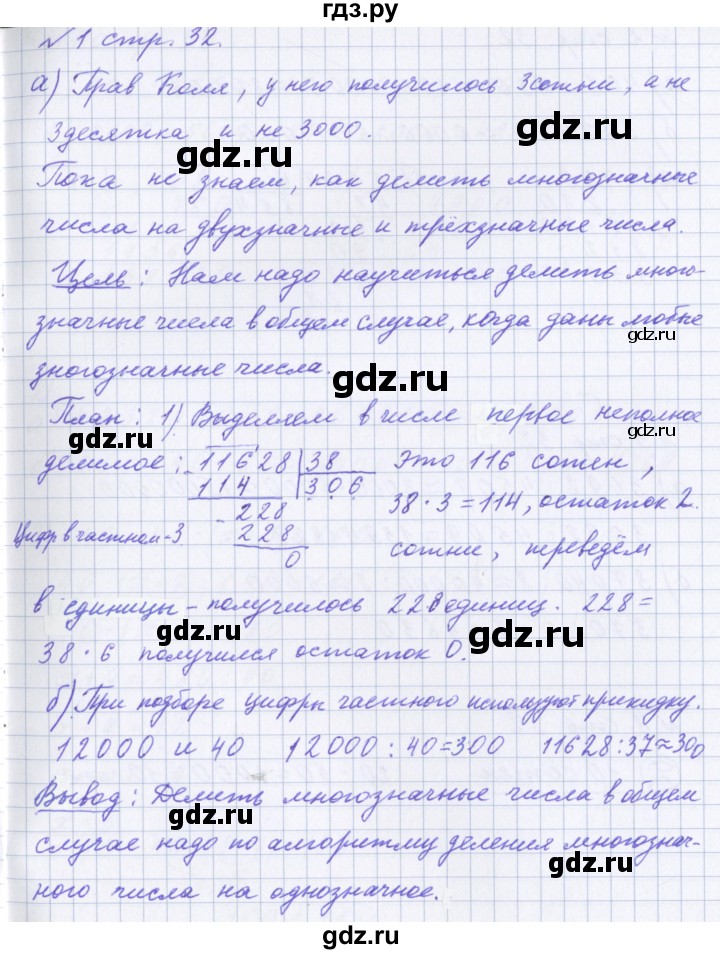 гдз.ру
№1 стр. 32.
а) Прав Коля, у него получилось 3сотни, а не
3десятка и не 3000.
gdz.ru
gdz.ru
Пока не знаем, как делить многозначные
числа на двухзначные и трёхзначные числа.
Цель: Нам надо научиться делить много-
gdz.ru
значные числа в общем случае, когда даны любые
gdz.ru
зногозначные числа.
gdz.ru
План: 1) Выделяем в числе первое неполное
gdz.ru
делимое: 11628 38 Это 116 сотен,
114 306 38·3=114, остаток 2.
gdz.ru
- 228
Цифр в частном-3 228 сотни, переведём
0
в единицы - получилось 228единиц. 228=
gdz.ru
gdz.ru
38·6 получился остаток 0.
б) При подборе цифры частного используют прикидку.
gdz.ru
12000 и 40 12000:40=300 11628:37≈300
gdz.ru
Вывод: Делить многозначные числа в общем
gdz.ru
случае надо по алгоритму деления многознач-
gdz.ru
ного числа на однозначное.
gdz.ru